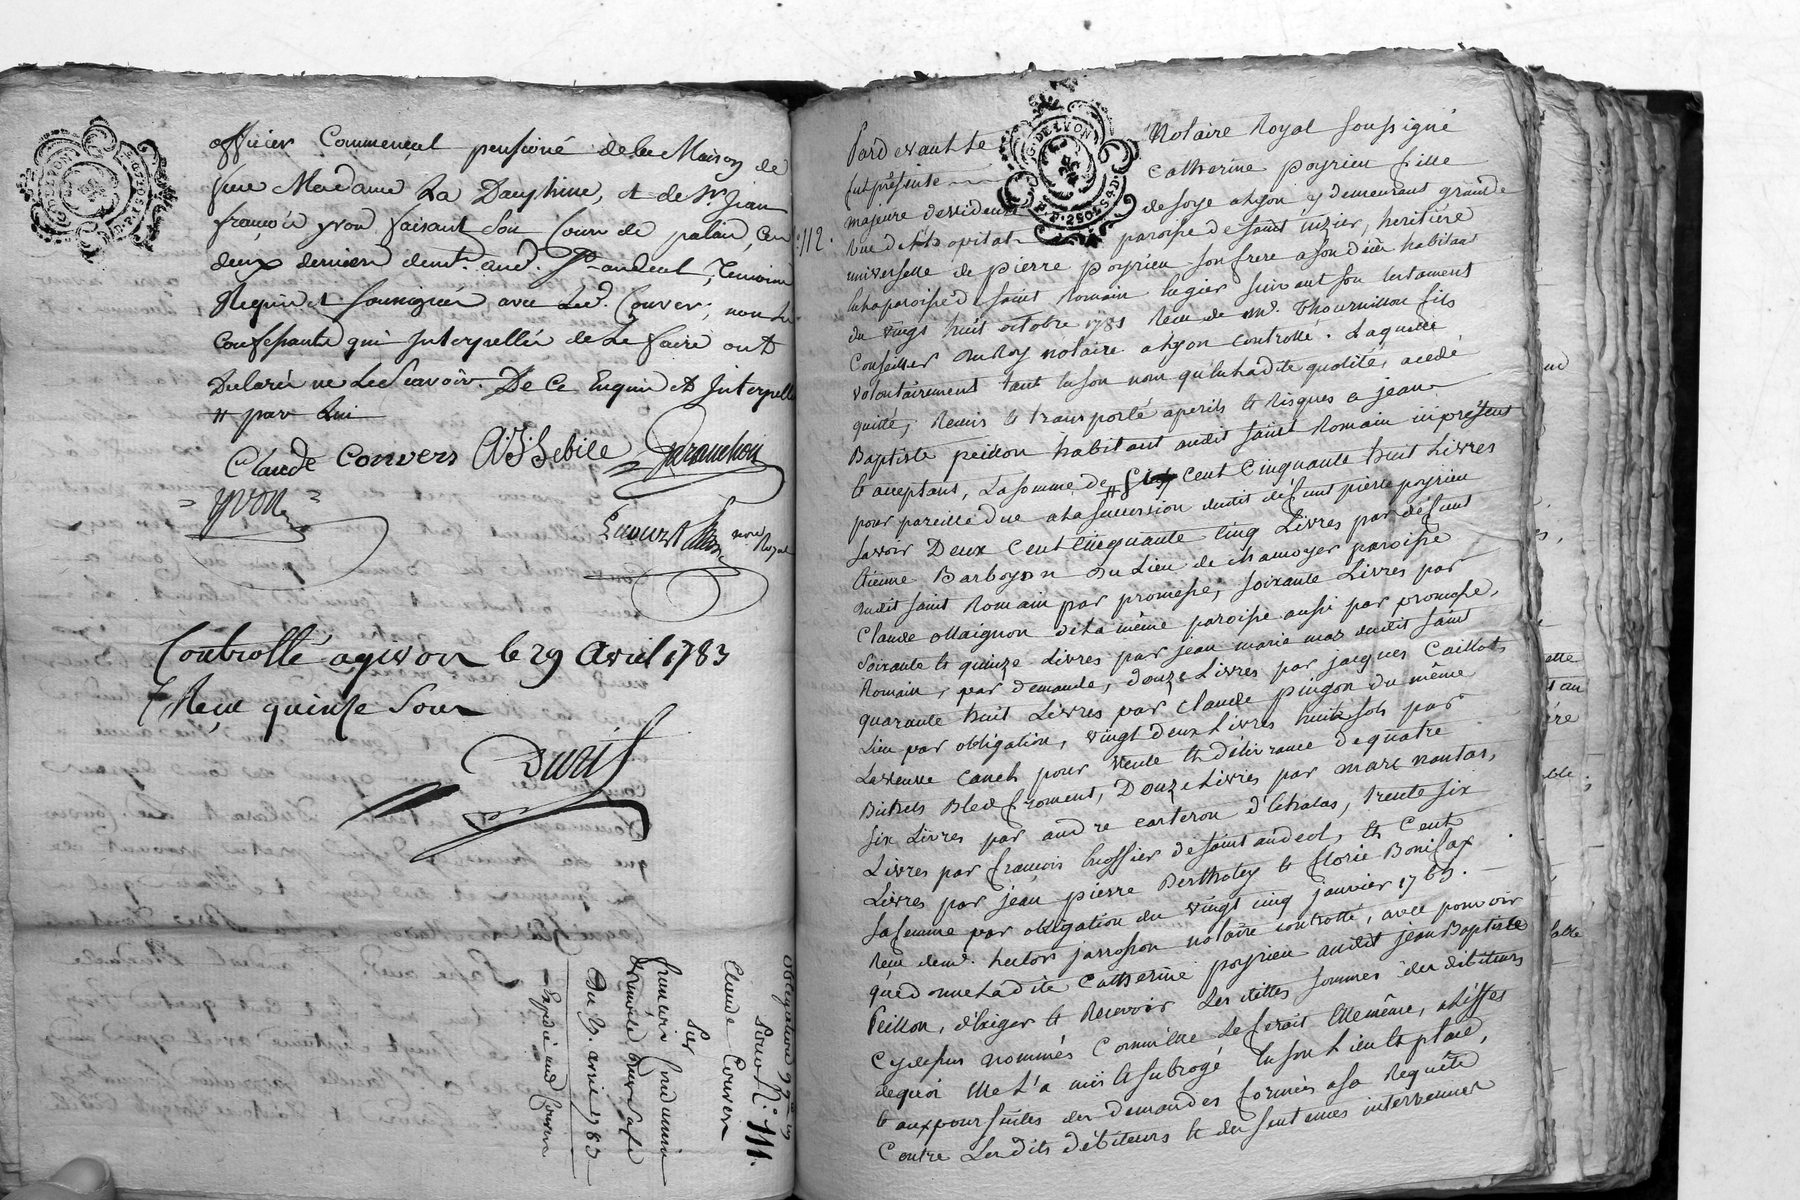 officier Commençal pensioné de la Maison de
feue Madame La Dauphine, et de Sr. Jean
françois yvon faisant Son Cours de palais, Ces
deux derniers demt. aud. St. andeol, Temoins
Requis et soussignés avec led. Convers, non les
Confessants qui Interpellés de Le faire ont
Declaré ne Le Scavoir. De Ce Enquis et Interpellé
par
Claude Convers Sebile
yvon
nore Royal
Controllé a givors le 29 avril 1783
Reçu quinze Sous
G. DE LYON
Obligation
Sous N.° 111.
Claude Convers
Du 29. avril 1783
Expédié aud. Convers
112.
Pardevant Le Notaire Royal soussigné
fut présente Catherine poyrieu fille
majeure devideuse de soye a lyon y demeurant grande
rue de L'hopital paroisse de saint nizier, heritière
universelle de pierre poyrieu son frere a son décès habitant
en la paroisse de saint Romain Suivant son testament
du vingt huit octobre 1781 Reçu de Me. Thournillon fils
Conseiller du Roy notaire a lyon controllé. Laquelle
volontairement tant en son nom qu'en ladite qualité, a cedé
quitté, Remis et transporté a perils et Risques a jean
Baptiste peillon habitant audit saint Romain ici présent
et acceptant, La somme de cent Cinquante huit Livres
pour pareille due a la succession dudit défunt pierre poyrieu
savoir Deux Cent Cinquante Cinq Livres par défunt
Etienne Barboyon du Lieu de chamoyer paroisse
dudit saint Romain par promesse, soixante Livres par
Claude Maignon de la même paroisse aussi par promesse,
soixante et quinze Livres par jean marie mas dudit saint
Romain, par demande, douze Livres par jacques Caillot
quarante huit Livres par claude pinjon du même
Lieu par obligation, vingt deux Livres huit sols par
La veuve canel pour vente et délivrance de quatre
Bichets Bled froment, Douze Livres par marc nantas,
six Livres par andré carteron d'Echalas, trente six
Livres par françois de saint andeol, et Cent
Livres par jean pierre Bertholey et florie Bonifax
sa femme par obligation du vingt cinq janvier 1763.
Reçu de Me. hector jarosson notaire controllé, avec pouvoir
que donne ladite Catherine poyrieu audit jean Baptiste
Peillon, d'Exiger et Recevoir Les dittes sommes des débiteurs
cy dessus nommés Comme Elle Le feroit Elle même, a L'effet
de quoi Elle L'a mis et subrogé En son Lieu et place,
et aux poursuites des demandes formées a sa Requête
Contre Les dits débiteurs et des sentences intervenues